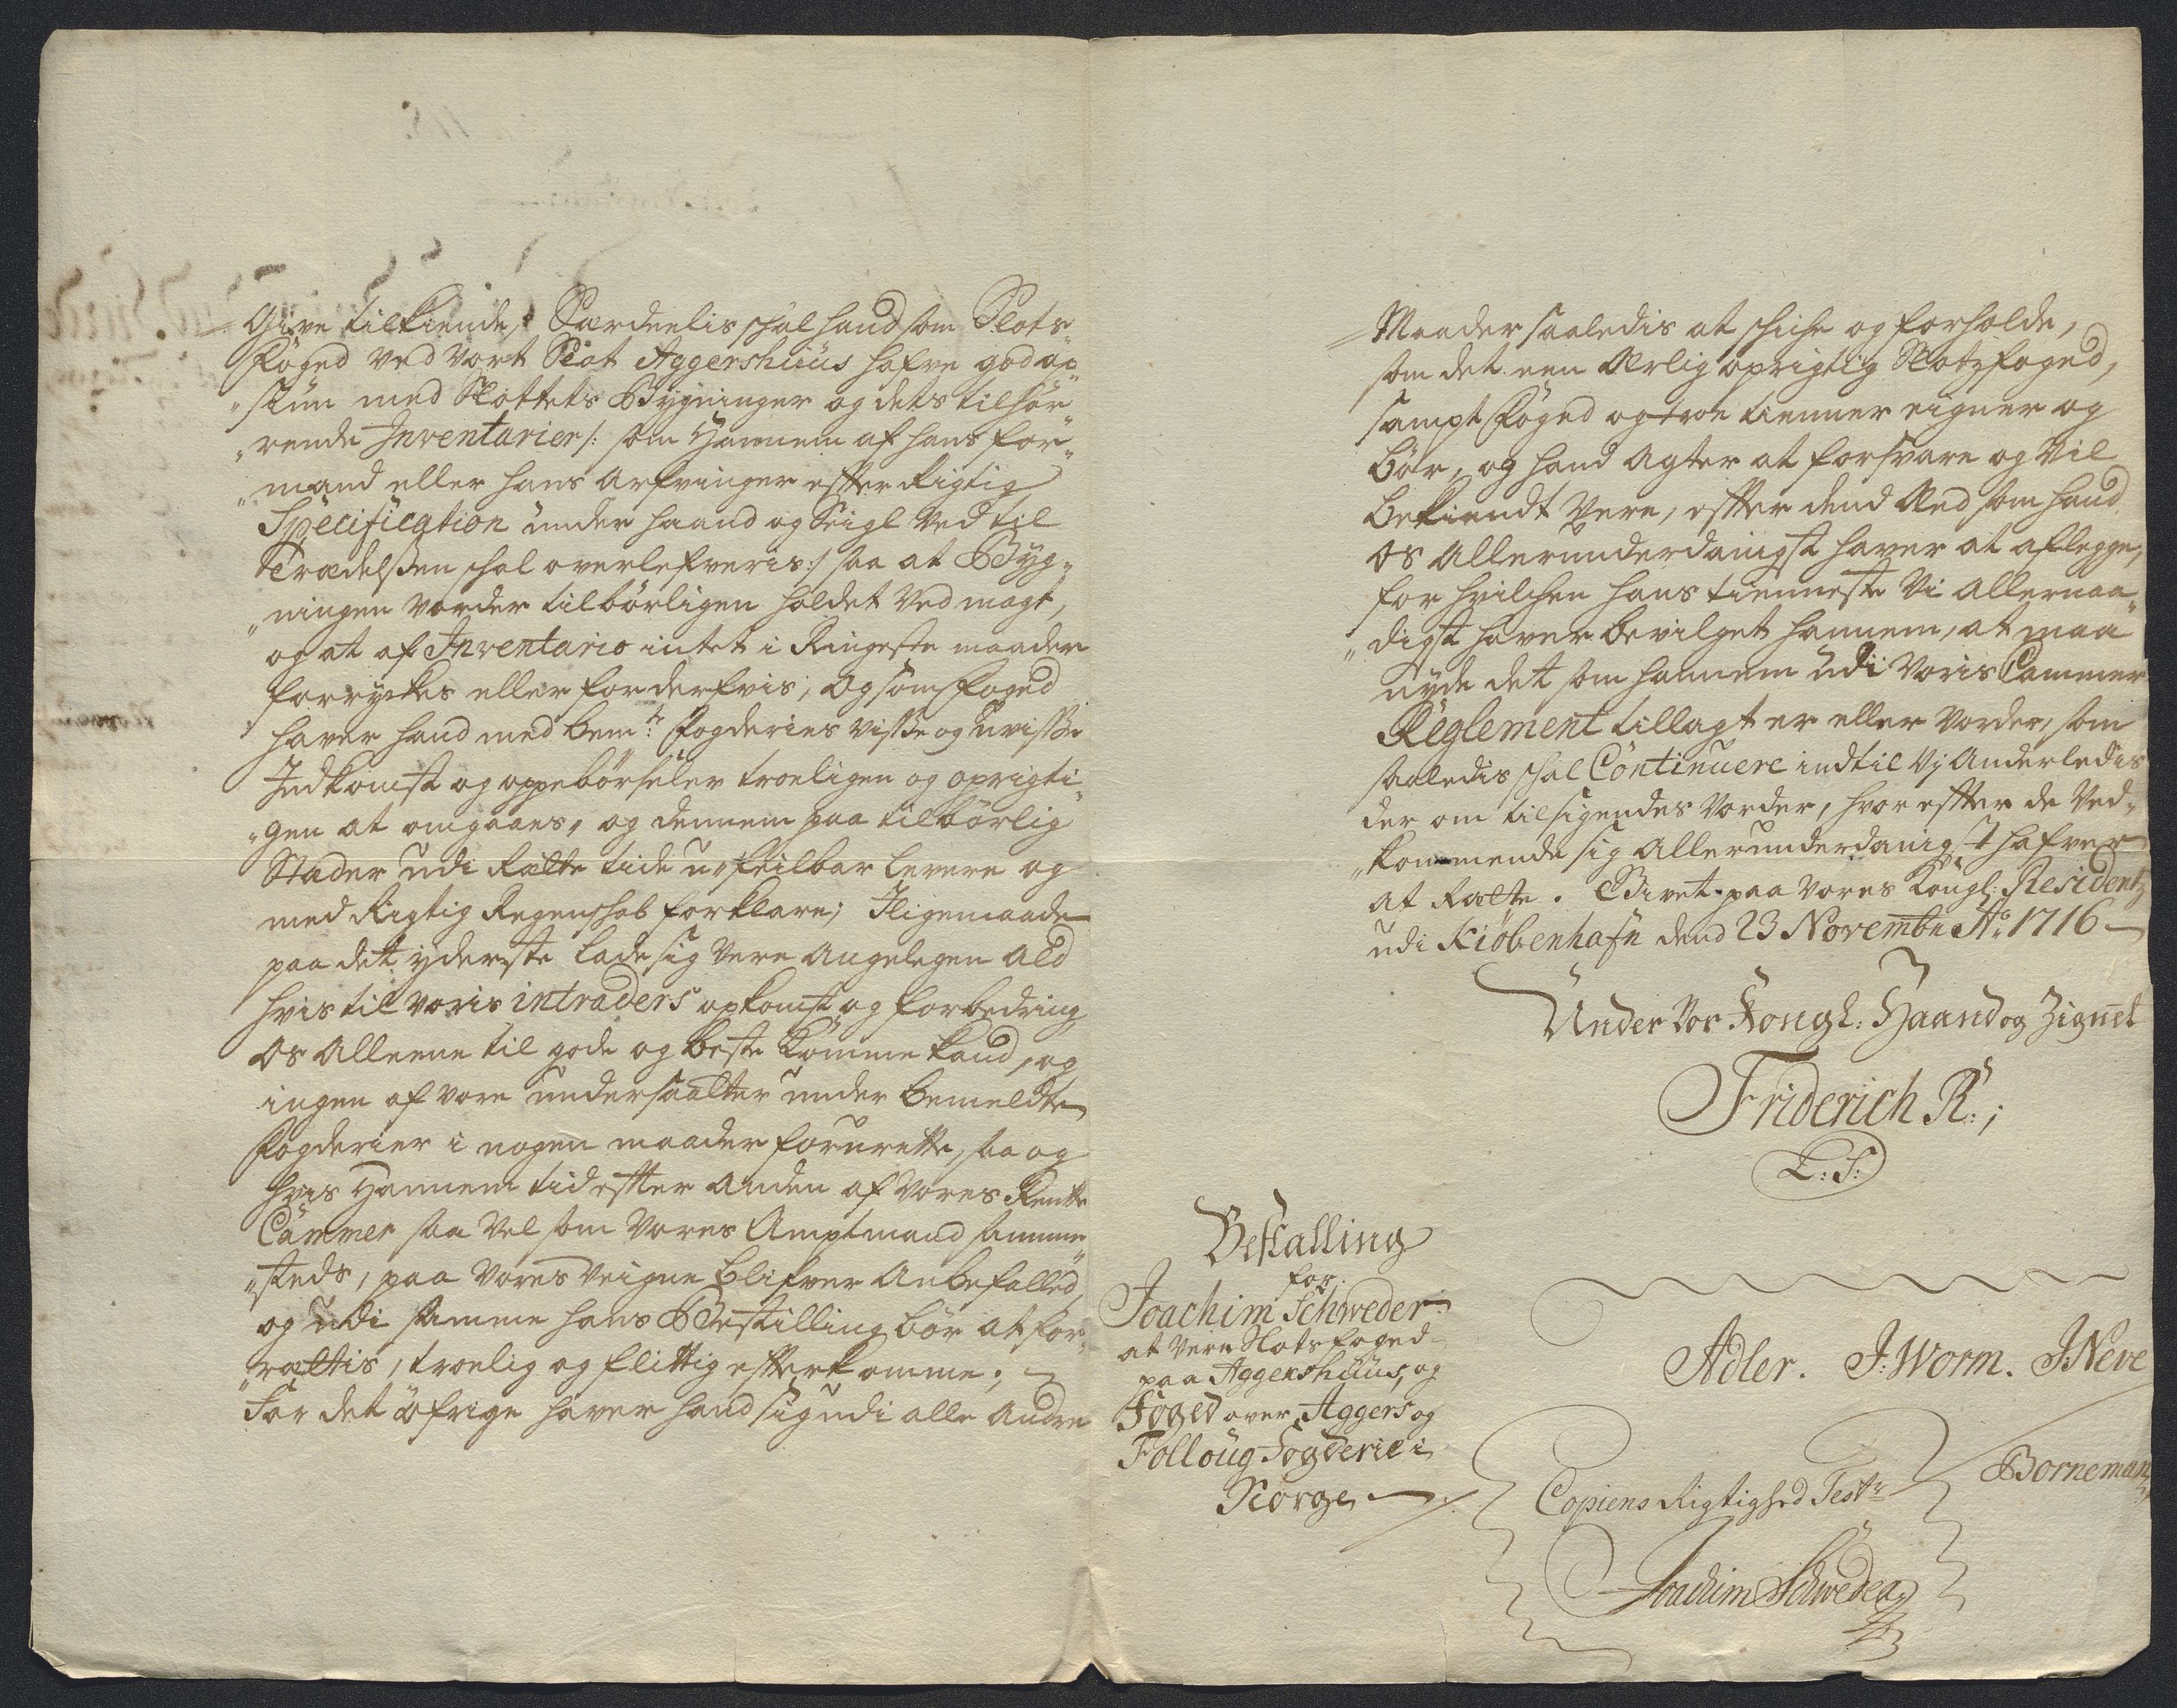 Give tilkiende, Særdeelis schal hand som Slots¬
Foged ved vort Slot Aggershuus hafve god op¬
„siun med Slottets Bygninger og dets tilhör„
„rende Inventarier /: som Hannem af hans for„
„mand eller hans Arfvinger efter Rigtig
Specification under haand og Seigl ved til
Trædelssen schal overlefveris :/ saa at Byg„
„ningen vorder tilbörligen holdet ved magt,
og at af Inventario intet i Ringeste maader
forryckes eller forderfvis; og som Foged
haver hand med bemte Fogderies visse og uvisse
Indkomst og oppebörseler troeligen og oprigti„
„gen at omgaaes, og dennem paa tilbörlig
Stæder udi Rætte tide ufeilbar levere og
med Rigtig Regenschab forklare; Iligemaade
paa det yderste lade sig være Angelegen ald
hvis til voris intraders opkomst og forbedring
os Alleene til gode og beste komme kand, og
ingen af vore undersaatter under bemeldte
Fogderier i nogen maader forurette, saa og
hvis Hannem tid efter anden af vores Rente
Cammer saa vel som vores Amptmand samme„
„steds, paa vores veigne blifver Anbefalled,
og udi samme hans Bestilling bör at for„
„rættis, troelig og flittig efterkomme;
For det öfrige haver hand sig udi alle Andre
Maader saaledis at schicke og forholde,
som det een Ærlig oprigtig Slotzfoged,
sampt Foged og troe tienner eigner og
bör, og hand Agter at forsvare og vil
bekiendt være, effter dend Æed som hand
os Allerunderdanigst haver at aflegge,
for hvilchen hans tienneste Vi Allernaa„
„digst haver bevilget hannem, at maa
nyde det som hannem udi voris Cammer
Reglement tillagt er eller vorder, som
saaledis schal Continuere indtil vj Anderledis
der om tilsigendes vorder, hvorefter de Ved„
„kommende sig Allerunderdanigst hafver
at Rætte. Givet paa vores Kongl: Residentz
udi Kiöbenhafn dend 23 Novembr Ao 1716
Under Vor Kongl: Haand og Zignet
Friderich R:;
L: S:
Bestalling
for
Joachim Schweder
at være Slotsfoged
paa Aggershuus, og
Foged over Aggers og
Folloug Fogderie i
Norge
Adler. J: Worm. J: Neve
Borneman
Copiens Rigtighed Testr
Joachim Schweder